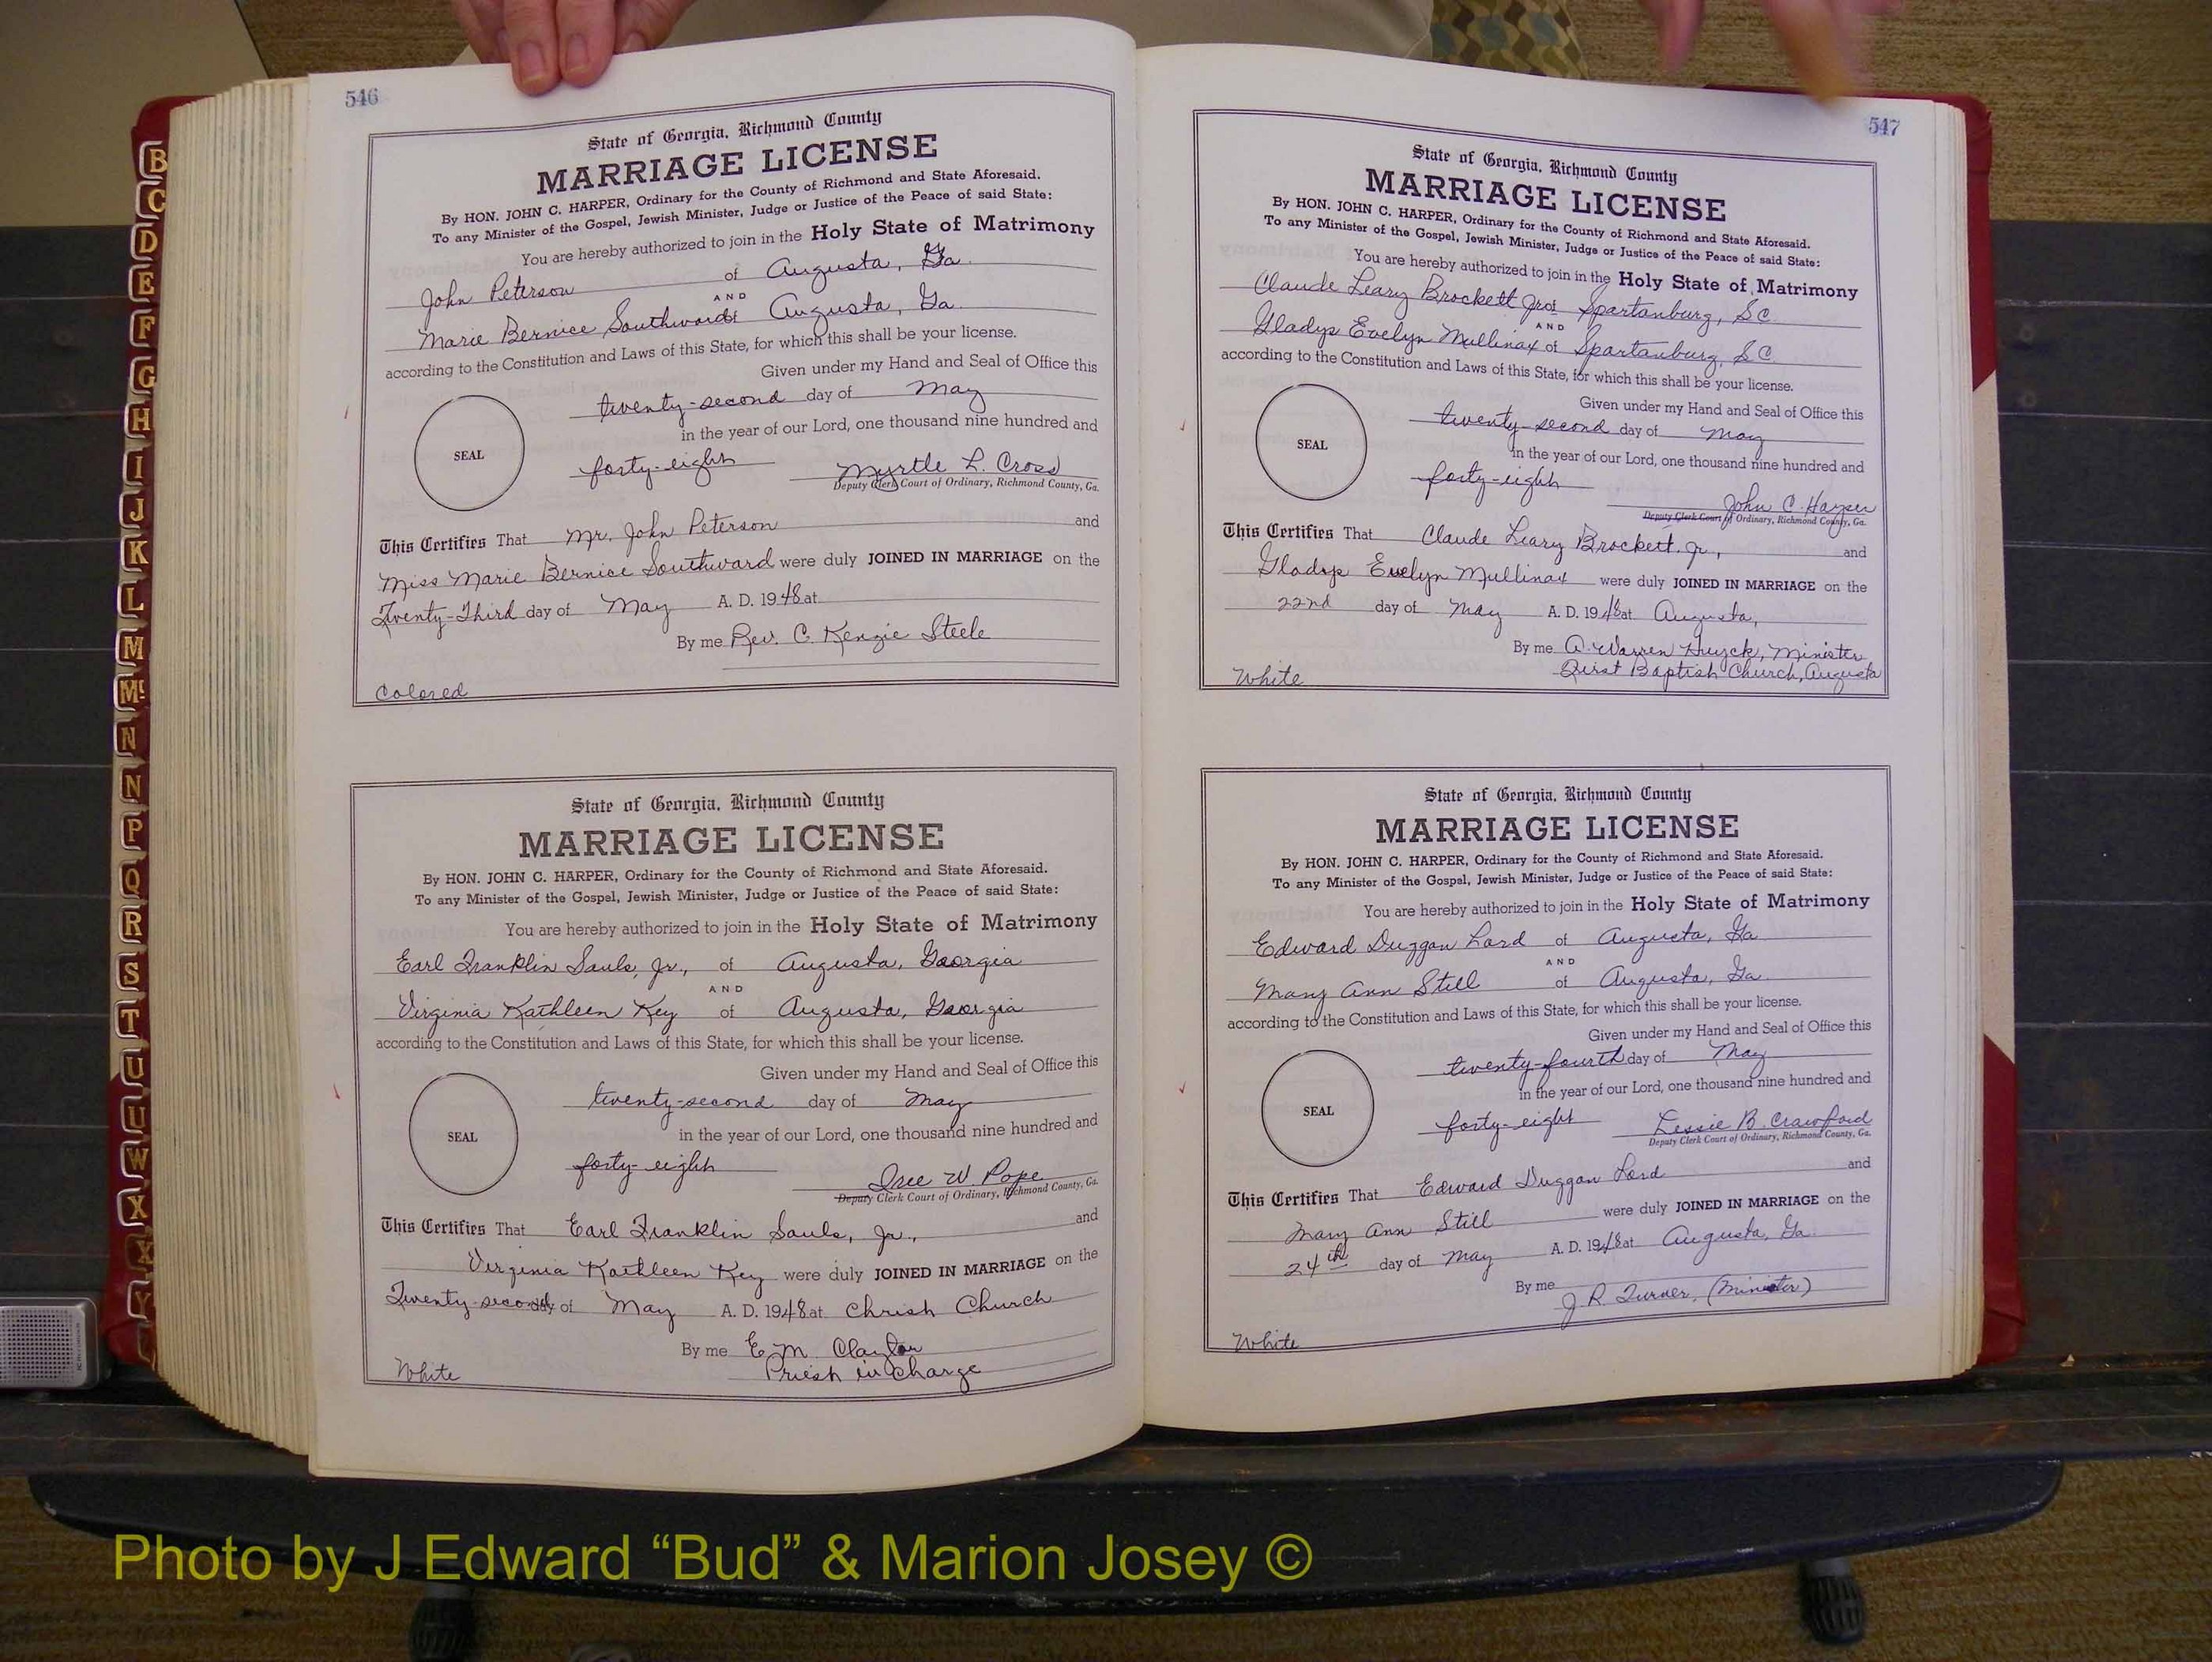 546
State of Georgia, Richmond County
MARRIAGE LICENSE
By HON. JOHN C. HARPER, Ordinary for the County of Richmond and State Aforesaid.
To any Minister of the Gospel, Jewish Minister, Judge or Justice of the Peace of said State:
You are hereby authorized to join in the Holy State of Matrimony
John Peterson of Augusta, Ga.
AND
Marie Bernice Southward of Augusta, Ga.
according to the Constitution and Laws of this State, for which this shall be your license.
Given under my Hand and Seal of Office this
twenty-second day of May
in the year of our Lord, one thousand nine hundred and
SEAL
forty-eight Myrtle L. Cross
Deputy Clerk Court of Ordinary, Richmond County, Ga.
This Certifies That Mr. John Peterson and
Miss Marie Bernice Southward were duly JOINED IN MARRIAGE on the
Twenty-Third day of May A. D. 1948 at
By me Rev. C. Kenzie Steele
Colored
State of Georgia, Richmond County
MARRIAGE LICENSE
By HON. JOHN C. HARPER, Ordinary for the County of Richmond and State Aforesaid.
To any Minister of the Gospel, Jewish Minister, Judge or Justice of the Peace of said State:
You are hereby authorized to join in the Holy State of Matrimony
Earl Franklin Sauls, Jr., of Augusta, Georgia
AND
Virginia Kathleen Key of Augusta, Georgia
according to the Constitution and Laws of this State, for which this shall be your license.
Given under my Hand and Seal of Office this
twenty-second day of May
in the year of our Lord, one thousand nine hundred and
SEAL
forty-eight W. Pope
Deputy Clerk Court of Ordinary, Richmond County, Ga.
This Certifies That Earl Franklin Sauls, Jr., and
Virginia Kathleen Key were duly JOINED IN MARRIAGE on the
Twenty-second day of May A. D. 1948 at Christ Church
By me E. M.
Priest in Charge
White
547
State of Georgia, Richmond County
MARRIAGE LICENSE
By HON. JOHN C. HARPER, Ordinary for the County of Richmond and State Aforesaid.
To any Minister of the Gospel, Jewish Minister, Judge or Justice of the Peace of said State:
You are hereby authorized to join in the Holy State of Matrimony
Claude Leary Brockett Jr of Spartanburg, SC
AND
Gladys Evelyn Mullinax of Spartanburg, SC
according to the Constitution and Laws of this State, for which this shall be your license.
Given under my Hand and Seal of Office this
twenty-second day of May
in the year of our Lord, one thousand nine hundred and
SEAL
forty-eight
John C. Harper
Deputy Clerk Court of Ordinary, Richmond County, Ga.
This Certifies That Claude Leary Brockett Jr., and
Gladys Evelyn Mullinax were duly JOINED IN MARRIAGE on the
22nd day of May A. D. 1948 at Augusta,
By me A. Warren Huyck, Minister
First Baptist Church, Augusta
White
State of Georgia, Richmond County
MARRIAGE LICENSE
By HON. JOHN C. HARPER, Ordinary for the County of Richmond and State Aforesaid.
To any Minister of the Gospel, Jewish Minister, Judge or Justice of the Peace of said State:
You are hereby authorized to join in the Holy State of Matrimony
Edward Duggan Lord of Augusta, Ga.
AND
Mary Ann Still of Augusta, Ga.
according to the Constitution and Laws of this State, for which this shall be your license.
Given under my Hand and Seal of Office this
twenty-fourth day of May
in the year of our Lord, one thousand nine hundred and
SEAL
forty-eight Lessie B. Crawford
Deputy Clerk Court of Ordinary, Richmond County, Ga.
This Certifies That Edward Duggan Lord and
Mary Ann Still were duly JOINED IN MARRIAGE on the
24th day of May A. D. 1948 at Augusta, Ga.
By me J. R. Turner, (Minister)
White
B
C
D
E
F
G
H
I
J
K
L
M
Mc
N
N
P
Q
R
S
T
U
U
W
X
X
Y
Photo by J Edward “Bud” & Marion Josey ©